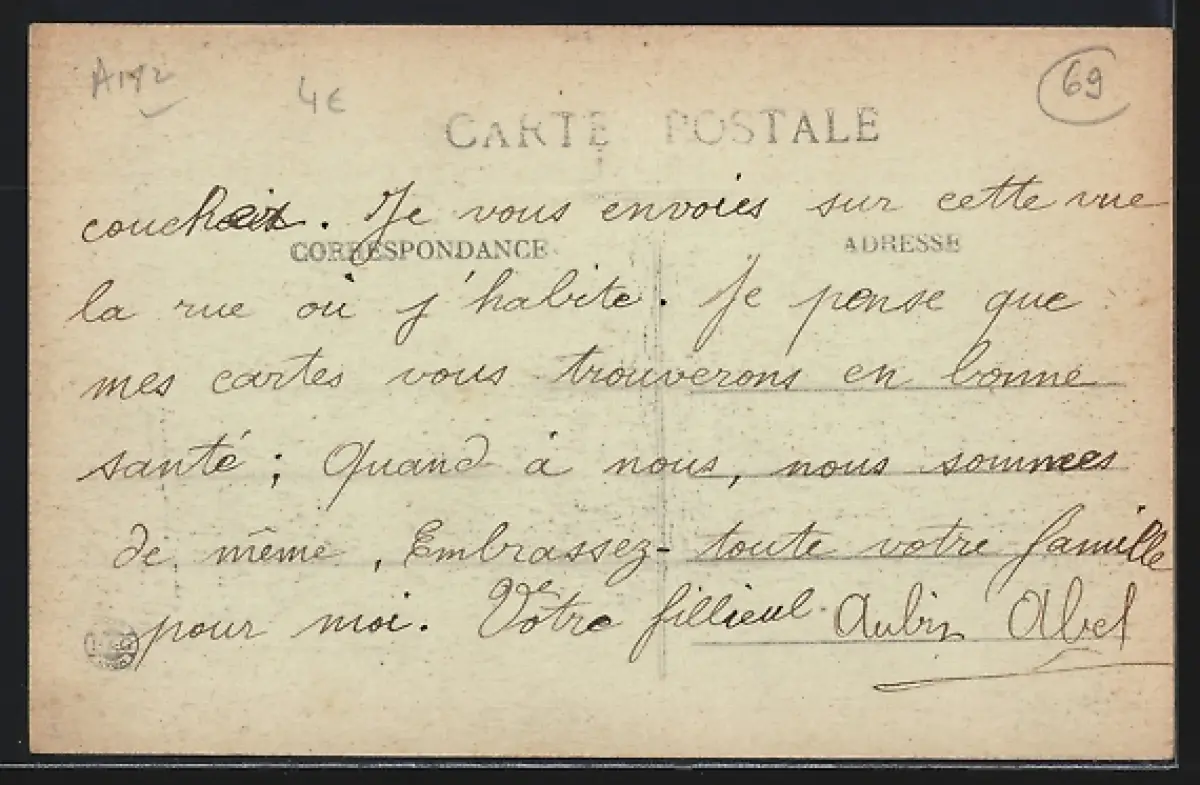 4€
69
CARTE POSTALE
Je vous envoies sur cette vue
CORRESPONDANCE
ADRESSE
la rue où j'habite. Je pense que
mes cartes vous trouverons en bonne
santé ; Quand à nous, nous sommes
de même, Embrassez-toute votre famille
pour moi. Votre fillieul Aubin Abel